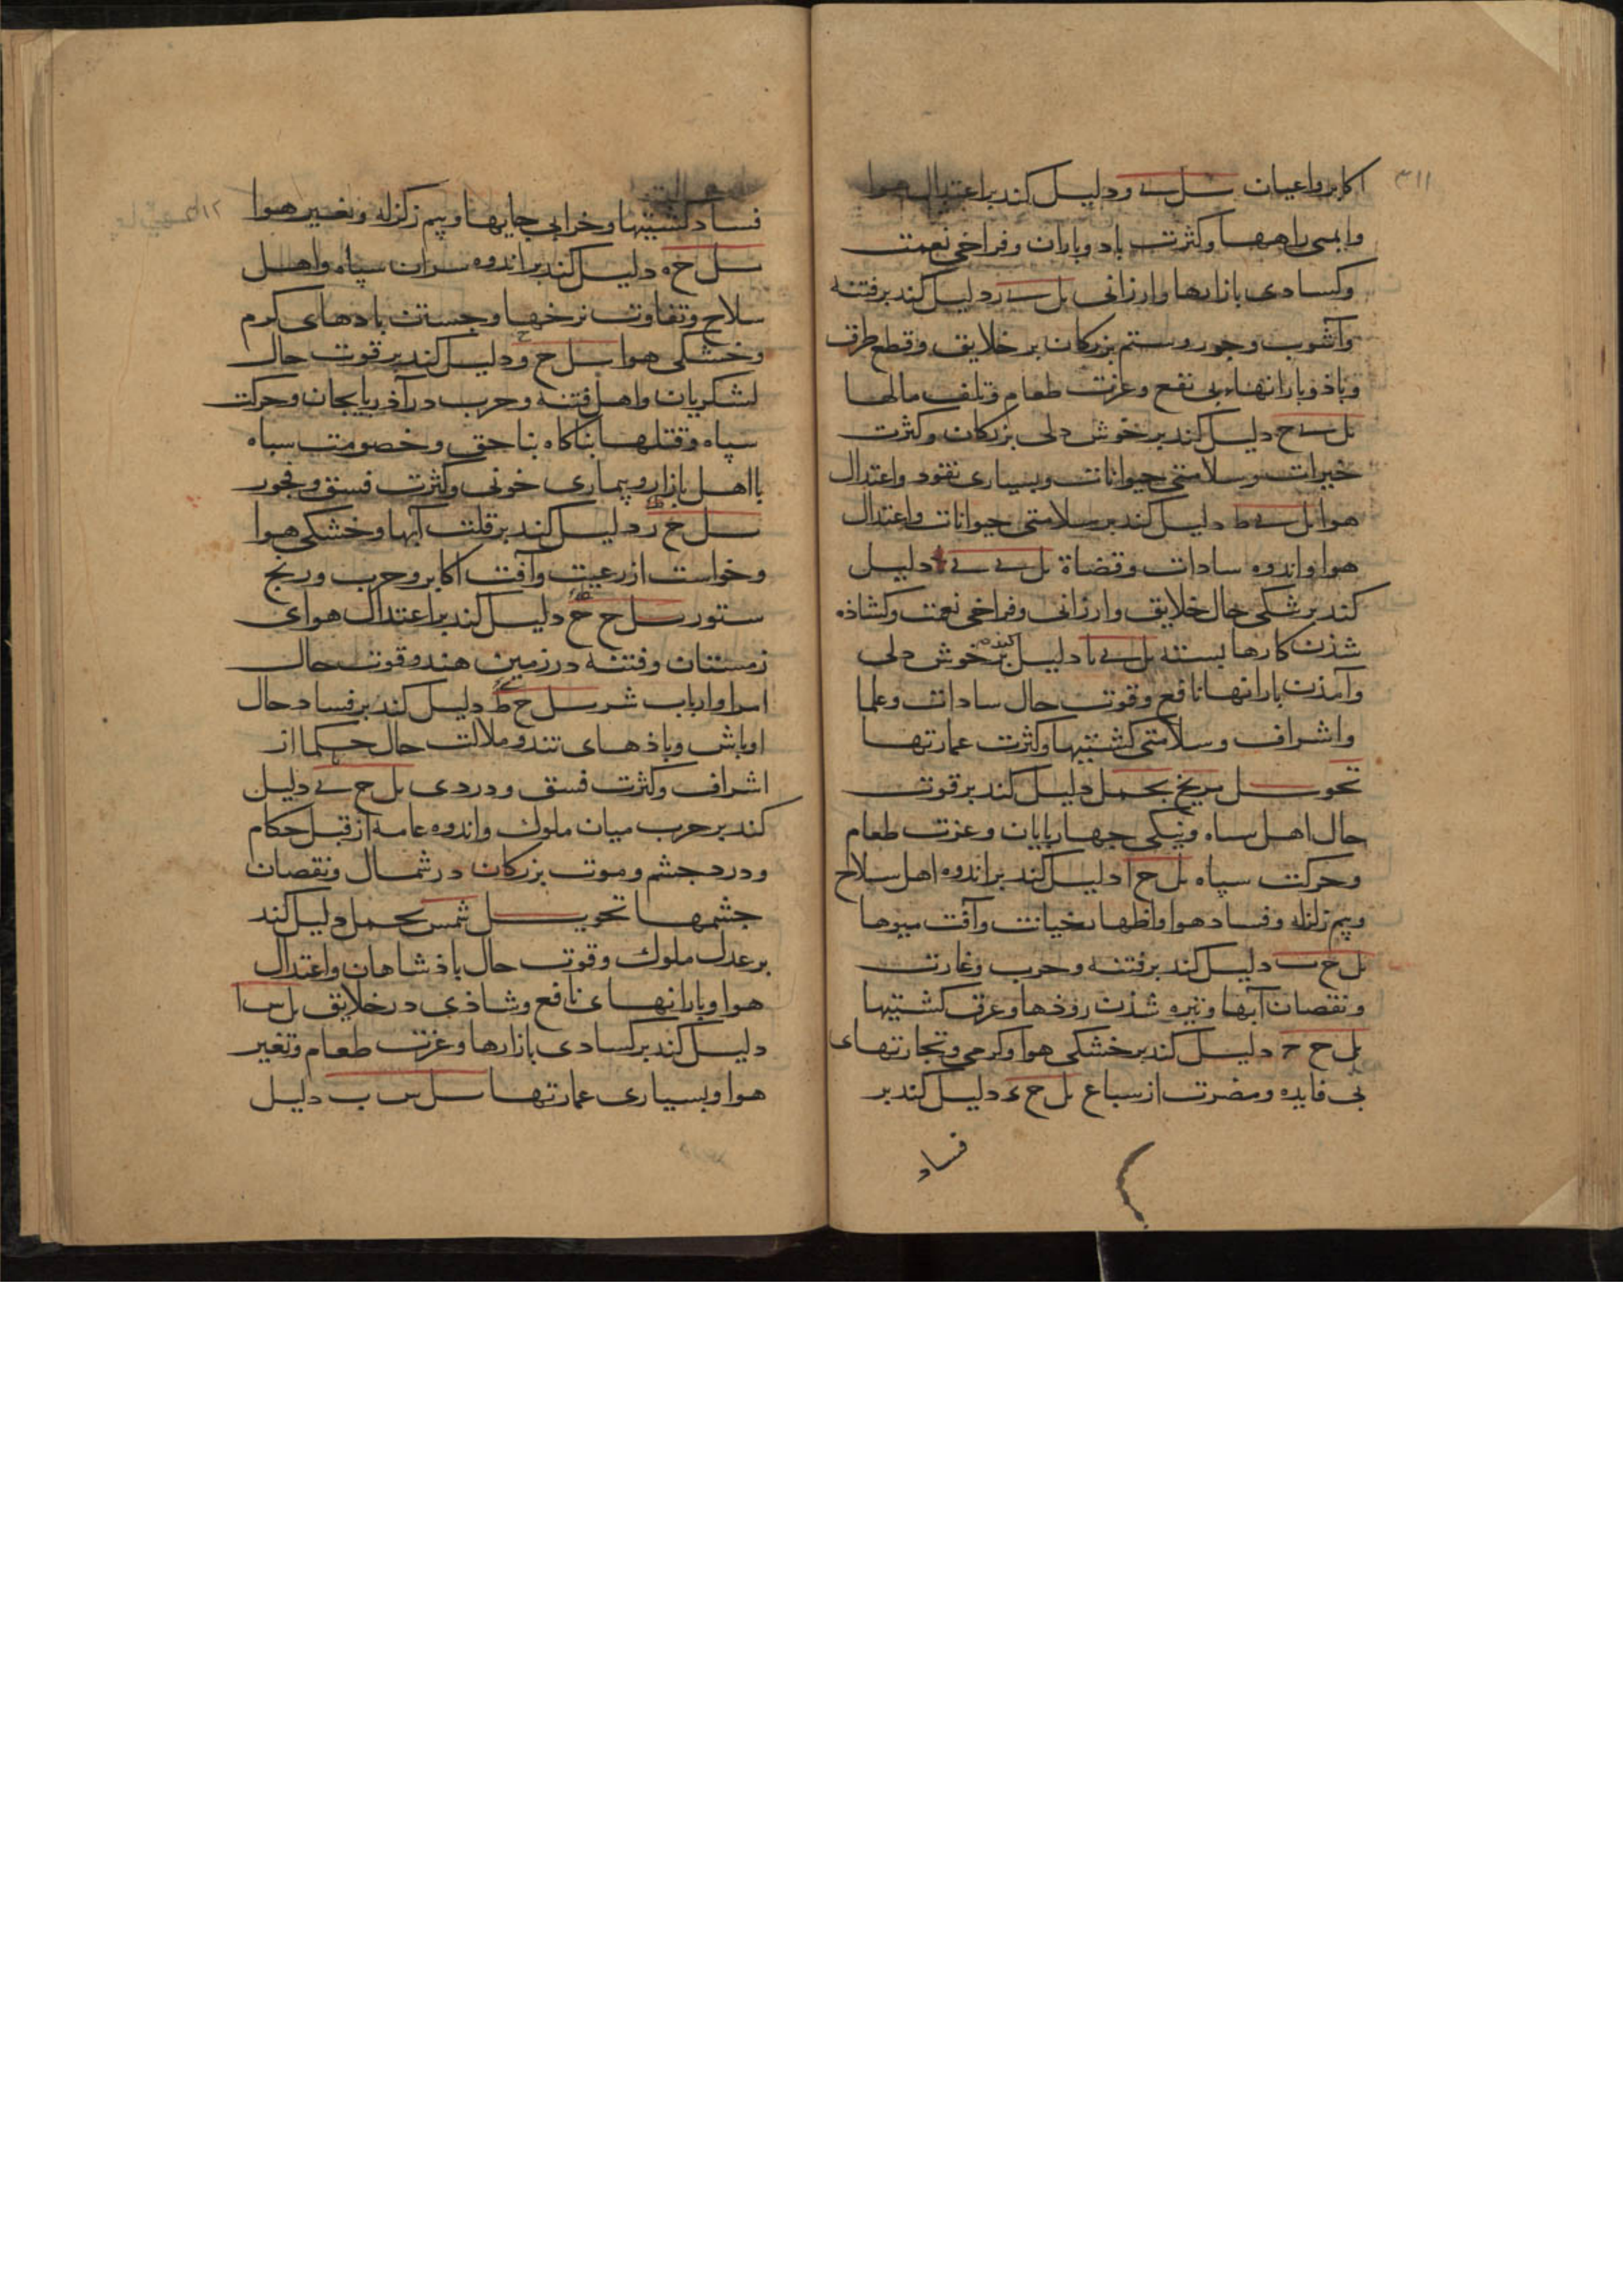 ۳۱۱
اکابر و اعیان بل ی و دلیل کند بر اعتدال هوا
و ایمنی راهها و کثرت باد و باران و فراخی نعمت
و کسادی بازارها و ارزانی بل ی ر دلیل کند بر فتنه
و آشوب و جور و ستم بزرکان بر خلایق و قطع طرق
و باذ و بارانهاء بی نفع و عزت طعام و تلف مالها
بل ی ح دلیل کند بر خوش دلی بزرکان و کثرت
خیرات و سلامتی حیوانات و بسیاری نقود و اعتدال
هوا بل ی ط دلیل کند بر سلامتی حیوانات و اعتدال
هوا و اندوه سادات و قضاة بل ی ی دلیل
کند بر نیکی حال خلایق و ارزانی و فراخی نعمت و کشاذه
شذن کارها بسته بل ی یا دلیل کند بر خوش دلی
و آمذن بارانها نافع و قوت حال سادات و علما
و اشراف و سلامتی کشتیها و کثرت عمارتها
تحویل مریخ بحمل دلیل کند بر قوت
حال اهل سپاه و نیکی جهارپایان و عزت طعام
و حرکت سپاه بل خ ا دلیل کند بر اندوه اهل سلاح
و بیم زلزله و فساد هوا و اظهار خیانت و آفت میوها
بل خ ب دلیل کند بر فتنه و حرب و غارت
و نقصان آبها و تیره شذن روذها و غرق کشتیها
بل خ ح دلیل کند بر خشکی هوا و کرمی و تجارتهای
بی فایده و مضرت از سباع بل خ ء دلیل کند بر
فساد
۳۱۲
فساد کشتیها و خرابی جایها و بیم زلزله و تغییر هوا
بل خ ه دلیل کند بر اندوه سران سپاه و اهل
سلاح و تفاوت نرخها و جستن بادهای کرم
و خشکی هوا بل خ و دلیل کند بر قوت حال
لشکریان و اهل فتنه و حرب در آذربایجان و حرکت
سپاه و قتلها بناکاه بناحق و خصومت سباه
با اهل بازار و بیماری خونی و کثرت فسق و فجور
بل خ ر دلیل کند بر قلت آبها و خشکی هوا
و خواست از رعیت و آفت اکابر و حرب و رنج
ستور بل خ ح دلیل کند بر اعتدال هوای
زمستان و فتنه در زمین هند و قوت حال
امرا و ارباب شر بل خ ط دلیل کند بر فساد حال
اوباش و باذهای تند و ملالت حال حکما از
اشراف و کثرت فسق و دزدی بل خ ی دلیل
کند بر حرب میان ملوک و اندوه عامه از قبل حکام
و درد جشم و موت بزرکان در شمال و نقصان
جشمها تحویل شمس بحمل دلیل کند
بر عدل ملوک و قوت حال باذشاهان و اعتدال
هوا و بارانهای نافع و شاذی در خلایق بل س ا
دلیل کند بر کسادی بازارها و عزت طعام و تغیر
هوا و بسیاری عمارتها بل س ب دلیل